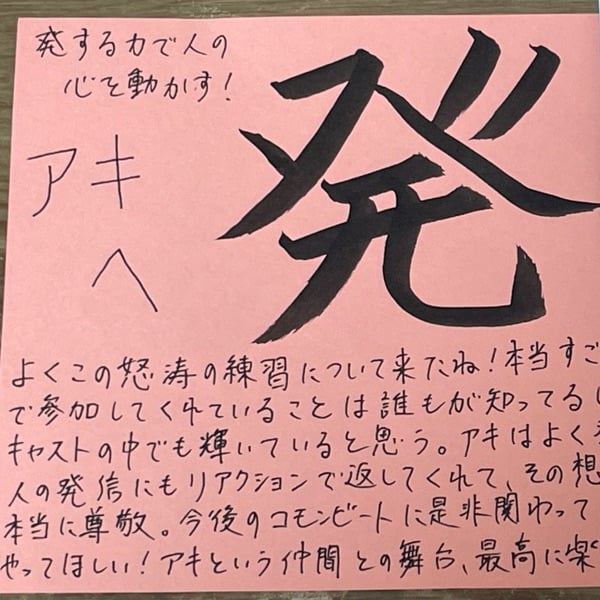 発する力で人の
心を動かす!
発
アキ
へ
よくこの怒涛の練習について来たね!本当すご
で参加してくれていることは誰もが知ってる
キャストの中でも輝いていると思う。アキはよく
人の発信にもリアクションで返してくれて、その想
本当に尊敬。今後のコモンビートに是非関わって
やってほしい!アキという仲間との舞台、最高に楽